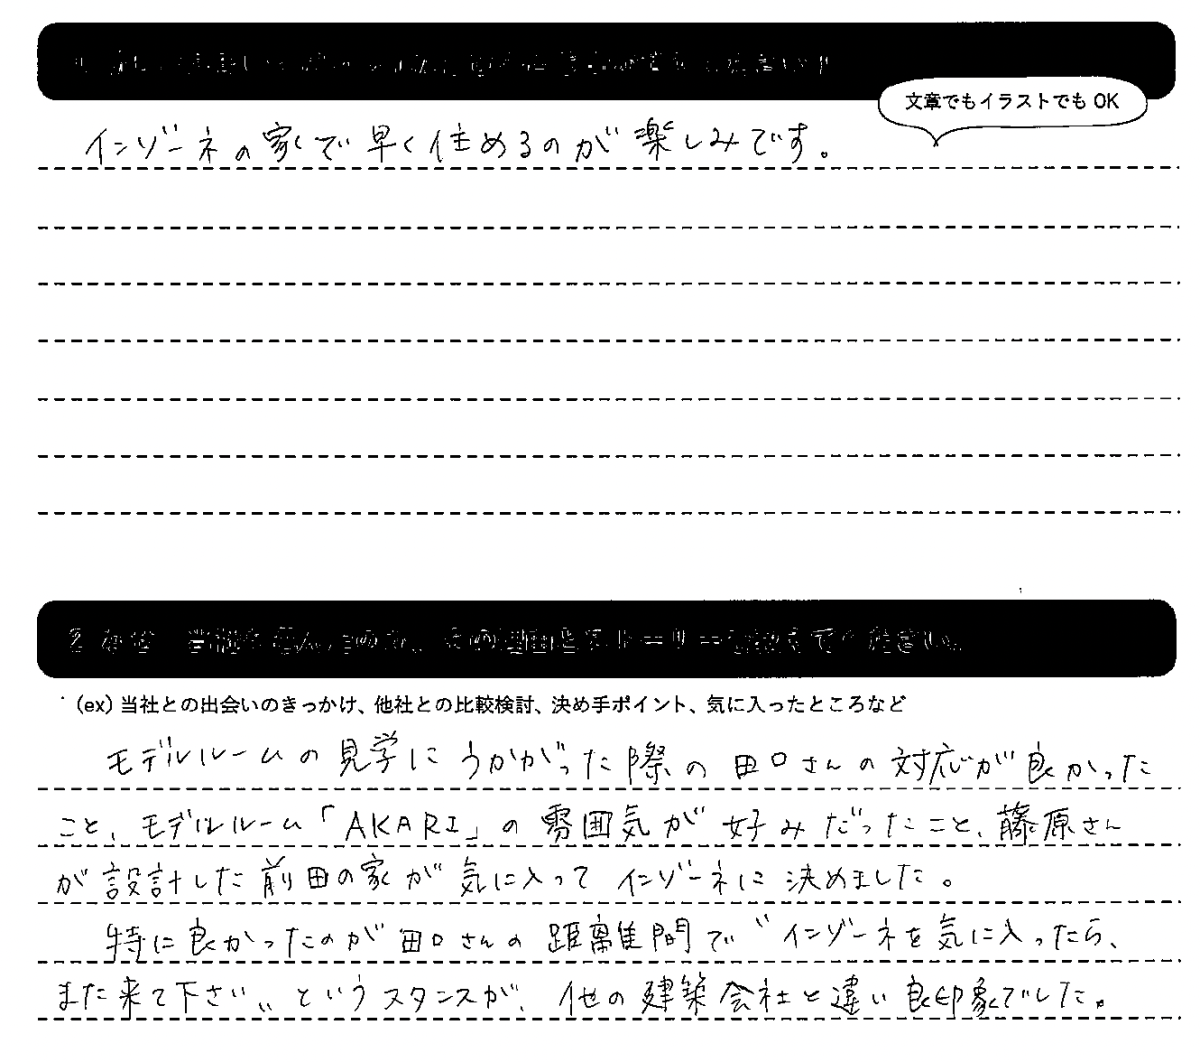 文章でもイラストでもOK
インゾーネの家で早く住めるのが楽しみです。
2 なぜ 当社を選んだのか、その理由とストーリーを教えてください。
(ex) 当社との出会いのきっかけ、他社との比較検討、決め手ポイント、気に入ったところなど
モデルルームの見学にうかがった際の田口さんの対応が良かった
こと、モデルルーム「AKARI」の雰囲気が好みだったこと、藤原さん
が設計した前田の家が気に入ってインゾーネに決めました。
特に良かったのが田口さんの距離間で〝インゾーネを気に入ったら、
また来て下さい〟というスタンスが、他の建築会社と違い良印象でした。